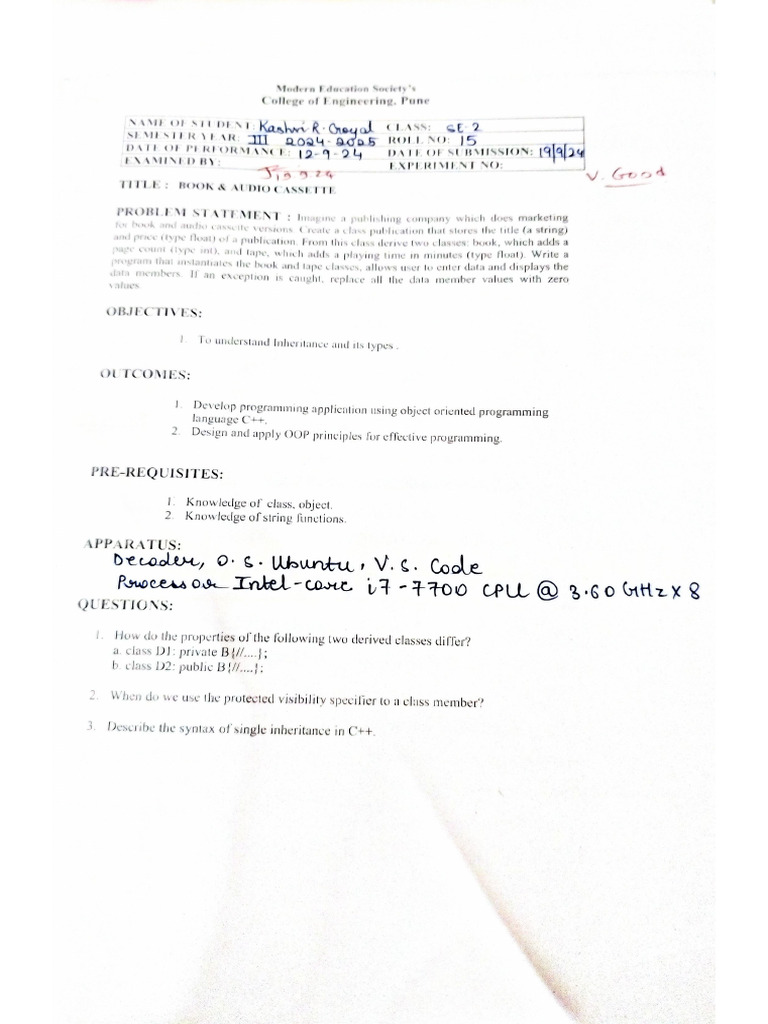 Modern Education Society's
College of Engineering, Pune
NAME OF STUDENT: Kashvi R. Goyal CLASS: SE-2
SEMESTER YEAR: III 2024-2025 ROLL NO: 15
DATE OF PERFORMANCE: 12-9-24 DATE OF SUBMISSION: 19/9/24
EXAMINED BY: EXPERIMENT NO:
V. Good
TITLE : BOOK & AUDIO CASSETTE
PROBLEM STATEMENT : Imagine a publishing company which does marketing
for book and audio cassette versions. Create a class publication that stores the title (a string)
and price (type float) of a publication. From this class derive two classes: book, which adds a
page count (type int), and tape, which adds a playing time in minutes (type float). Write a
program that instantiates the book and tape classes, allows user to enter data and displays the
data members. If an exception is caught, replace all the data member values with zero
values.
OBJECTIVES:
1. To understand Inheritance and its types .
OUTCOMES:
1. Develop programming application using object oriented programming
language C++.
2. Design and apply OOP principles for effective programming.
PRE-REQUISITES:
1. Knowledge of class, object.
2. Knowledge of string functions.
APPARATUS:
Decoder, O.S. Ubuntu, V.S. Code
Processor Intel-core i7-7700 CPU @ 3.60 GHz X 8
QUESTIONS:
1. How do the properties of the following two derived classes differ?
a. class D1: private B{//....};
b. class D2: public B{//....};
2. When do we use the protected visibility specifier to a class member?
3. Describe the syntax of single inheritance in C++.